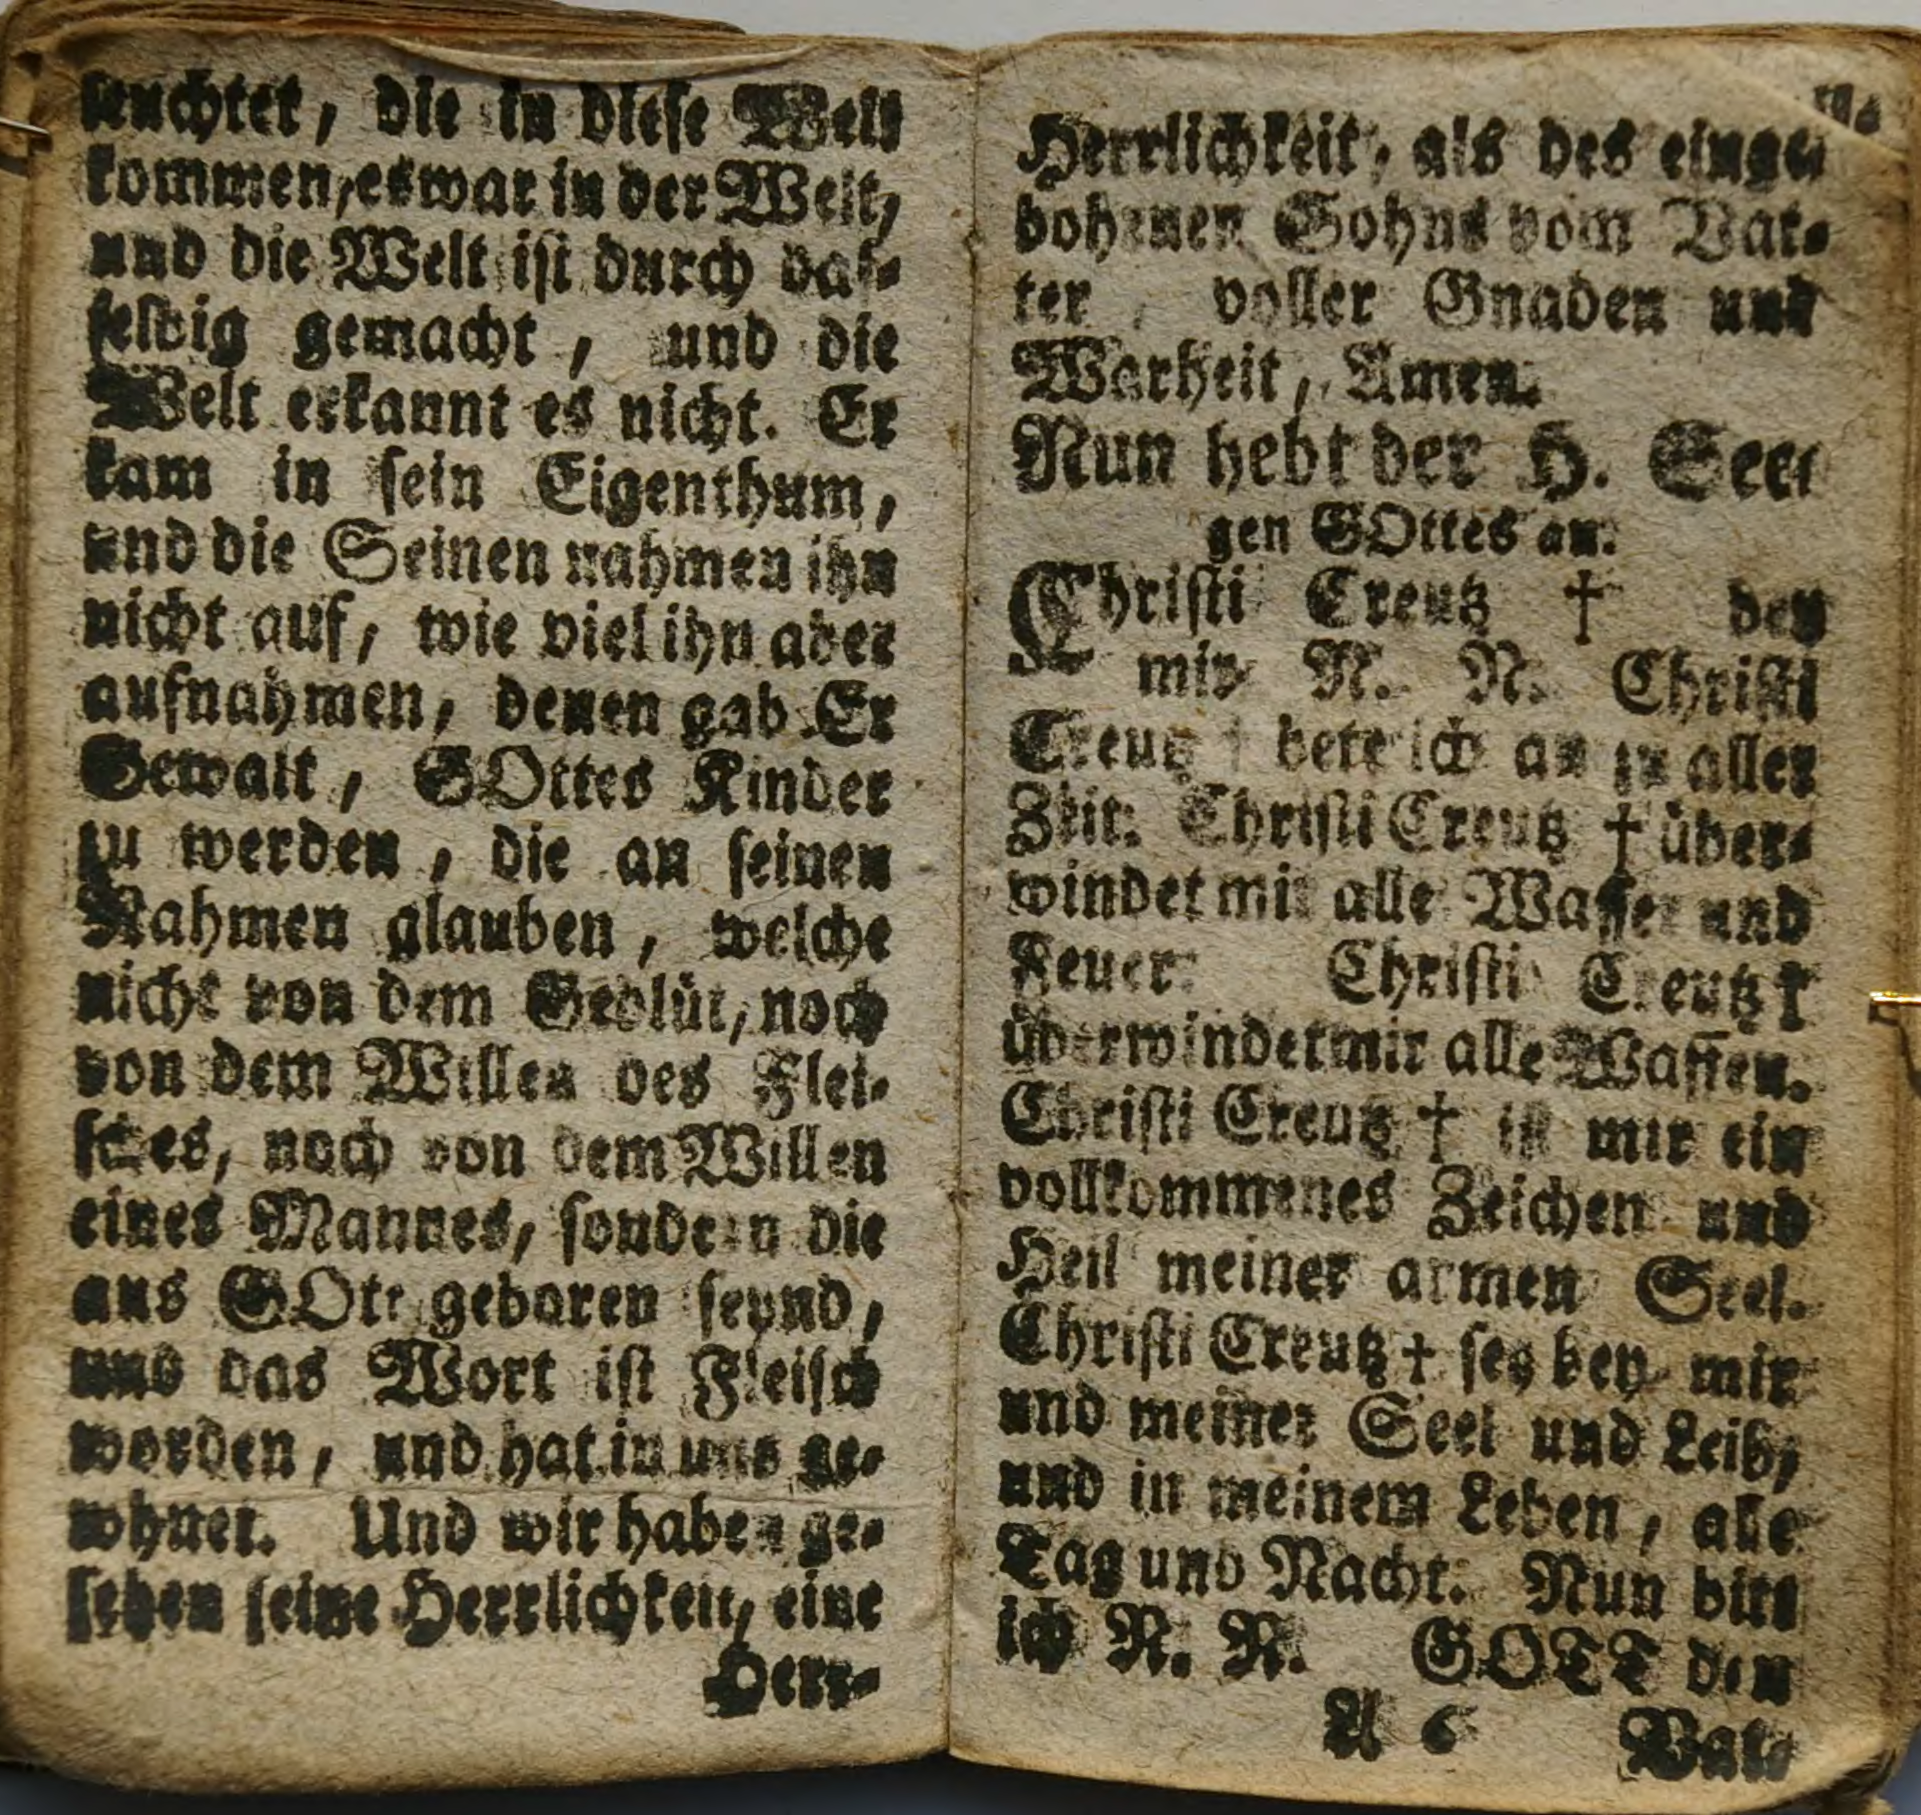 leuchtet, die in diese Welt
kommen, es war in der Welt,
und die Welt ist durch das-
selbig gemacht, und die
Welt erkannt es nicht. Er
kam in sein Eigenthum,
und die Seinen nahmen ihn
nicht auf, wie viel ihn aber
aufnahmen, denen gab Er
Gewalt, GOttes Kinder
zu werden, die an seinen
Nahmen glauben, welche
nicht von dem Geblüt, noch
von dem Willen des Flei-
sches, noch von dem Willen
eines Mannes, sondern die
aus GOtt geboren seynd,
und das Wort ist Fleisch
worden, und hat in uns ge-
wohnet. Und wir haben ge-
sehen seine Herrlichkeit, eine
Herr-
Herrlichkeit, als des einge-
bohrnen Sohns vom Vat-
ter, voller Gnaden und
Warheit, Amen.
Nun hebt der H. See-
gen GOttes an.
Christi Creutz † bey
mir N. N. Christi
Creutz † bete ich an zu aller
Zeit. Christi Creutz † über-
windet mir alle Wasser und
Feuer. Christi Creutz †
überwindet mir alle Waffen.
Christi Creutz † ist mir ein
vollkommenes Zeichen und
Heil meiner armen Seel.
Christi Creutz † sey bey mir
und meiner Seel und Leib,
und in meinem Leben, alle
Tag und Nacht. Nun bitt
ich N. N. GOTT den
A 6 Vat-